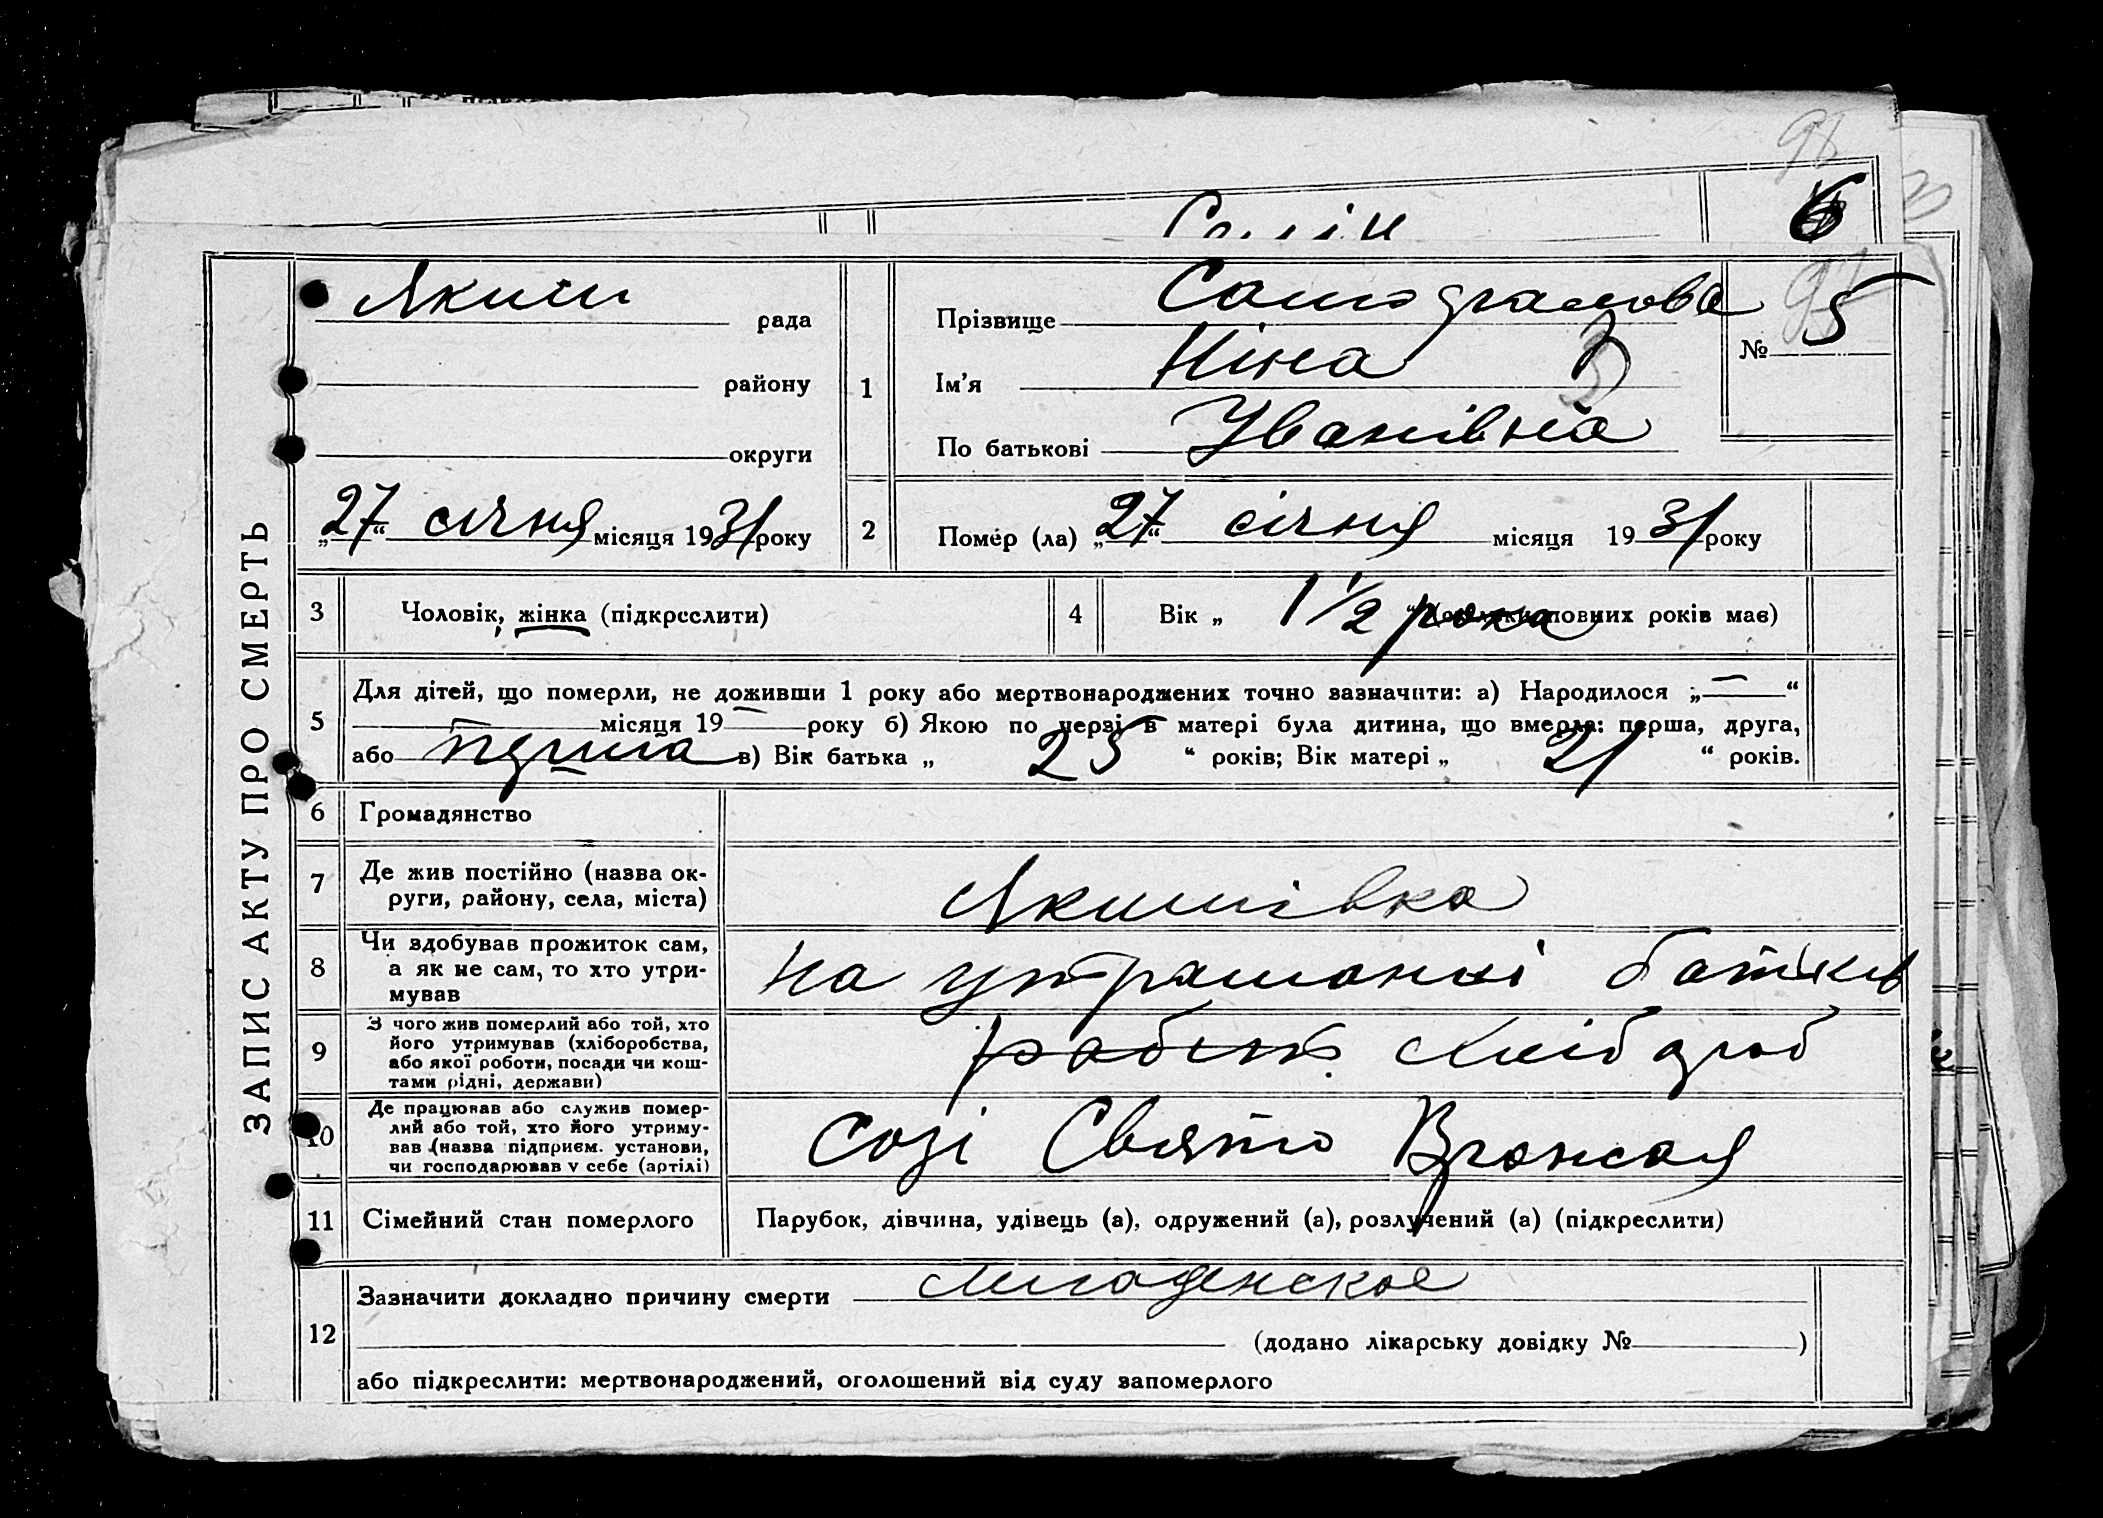 98
6
ЗАПИС АКТУ ПРО СМЕРТЬ
Якиш рада
району
округи
„27“ січня місяця 1931 року
1
Прізвище
Ім'я Ніна
По батькові Уванівна
№ 5
97
2
Помер (ла) „27“ січня місяця 1931 року
3
Чоловік, жінка (підкреслити)
4
Вік „ 1 1/2 рока “ повних років має)
5
Для дітей, що померли, не доживши 1 року або мертвонароджених точно зазначити: а) Народилося „—“
— місяця 19— року б) Якою по черзі в матері була дитина, що вмерла: перша, друга,
або перша в) Вік батька „ 25 “ років; Вік матері „ 21 “ років.
6
Громадянство
7
Де жив постійно (назва ок-
руги, району, села, міста)
Якимівка
8
Чи здобував прожиток сам,
а як не сам, то хто утри-
мував
на утриманні батьків
9
З чого жив померлий або той, хто
його утримував (хліборобства,
або якої роботи, посади чи кош-
тами рідні, держави)
робит. хлібороб
10
Де працював або служив помер-
лий або той, хто його утриму-
вав (назва підприєм. установи,
чи господарював у себе (артілі)
Созі Свято
11
Сімейний стан померлого
Парубок, дівчина, удівець (а), одружений (а), розлучений (а) (підкреслити)
12
Зазначити докладно причину смерти младенское
(додано лікарську довідку № )
або підкреслити: мертвонароджений, оголошений від суду запомерлого